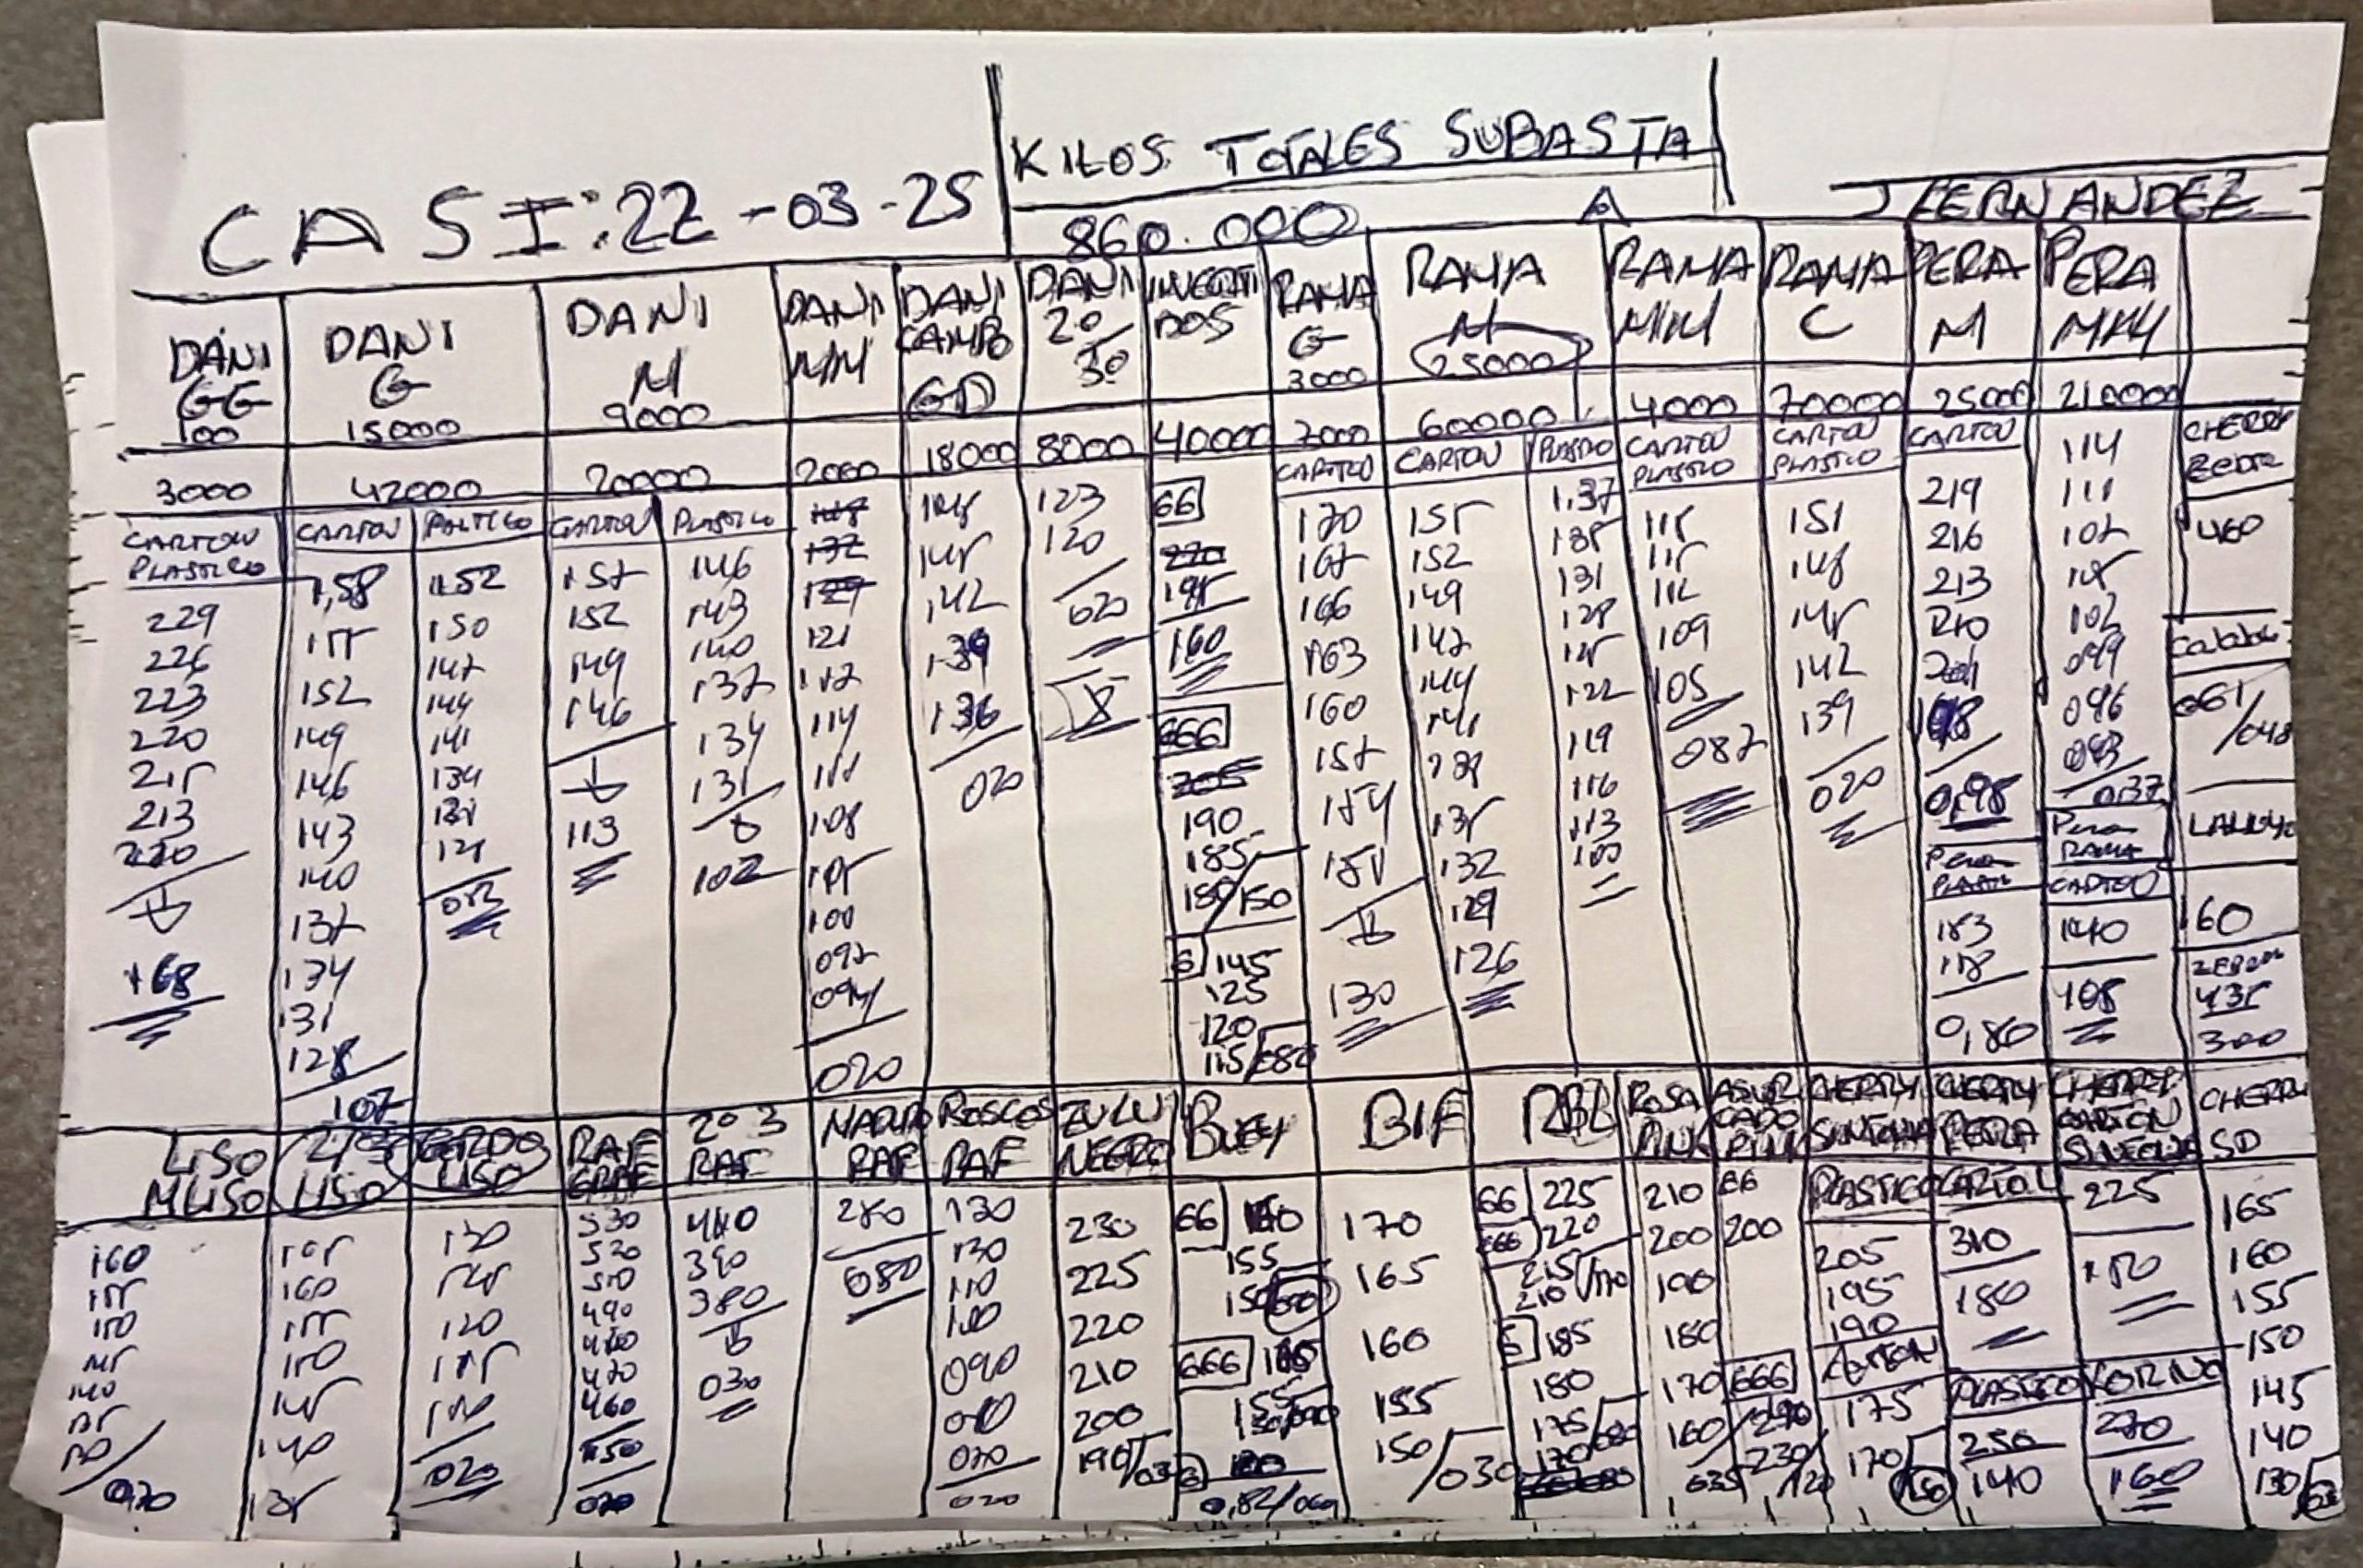 KILOS TOTALES SUBASTA
CASI: 22-03-25
860.000
J FERNANDEZ
DANI GG
100
3000
CARTON
PLASTICO
229
226
223
220
215
213
210
168
DANI G
15000
42000
CARTON
1,58
155
152
149
146
143
140
137
134
131
128
107
152
150
147
144
141
134
DANI M
9000
20000
CARTON
157
152
149
146
113
PLASTICO
146
143
140
137
134
131
102
DANI MM
2000
121
117
114
111
108
105
100
097
094
020
DANI CAMPO GD
18000
145
142
139
136
020
DANI 20/30
8000
123
120
020
INVERTIDOS
40000
66
160
666
190
185
180/150
6 145
125
120
115/080
RAMA G
3000
7000
CARTON
170
167
166
163
160
157
154
151
130
RAMA M
25000
60000
CARTON
155
152
149
147
144
141
139
135
132
129
126
PLASTICO
1,37
135
131
128
125
122
119
116
113
100
RAMA MM
4000
CARTON
PLASTICO
115
115
112
109
105
087
RAMA C
70000
CARTON
PLASTICO
151
148
145
142
139
020
PERA M
25000
CARTON
219
216
213
210
201
198
0,98
PERA
183
178
0,80
PERA MM
210000
114
111
107
105
102
099
096
093
037
PERA RAMA
CARTON
140
108
CHERRY
460
061/048
60
435
300
LISO
MLISO
160
155
150
145
140
135
130
020
LISO
165
160
155
150
145
140
135
GORDO LISO
130
125
120
115
110
020
RAF GRAF
530
520
510
490
480
470
460
450
020
2º 3 RAF
440
390
380
030
MADURO RAF
280
080
ROSCOS RAF
130
130
110
100
090
080
070
020
ZULU NEGRO
230
225
220
210
200
190/030
BUEY
66
155
666
0,82/060
BIF
170
165
160
155
150/030
RBL
66 225
666 220
215/170
210
6 185
180
175/080
170
ROSA PINK
210
200
190
180
170
160
035
ASURCADO PINK
66
200
666
290
230/120
CHERRY SINTONIA
PLASTICO
205
195
190
CARTON
175
170
CHERRY PERA
CARTON
310
180
PLASTICO
250
140
CHERRY CARTON SINTONIA
225
150
KORINO
270
160
CHERRY SD
165
160
155
150
145
140
130